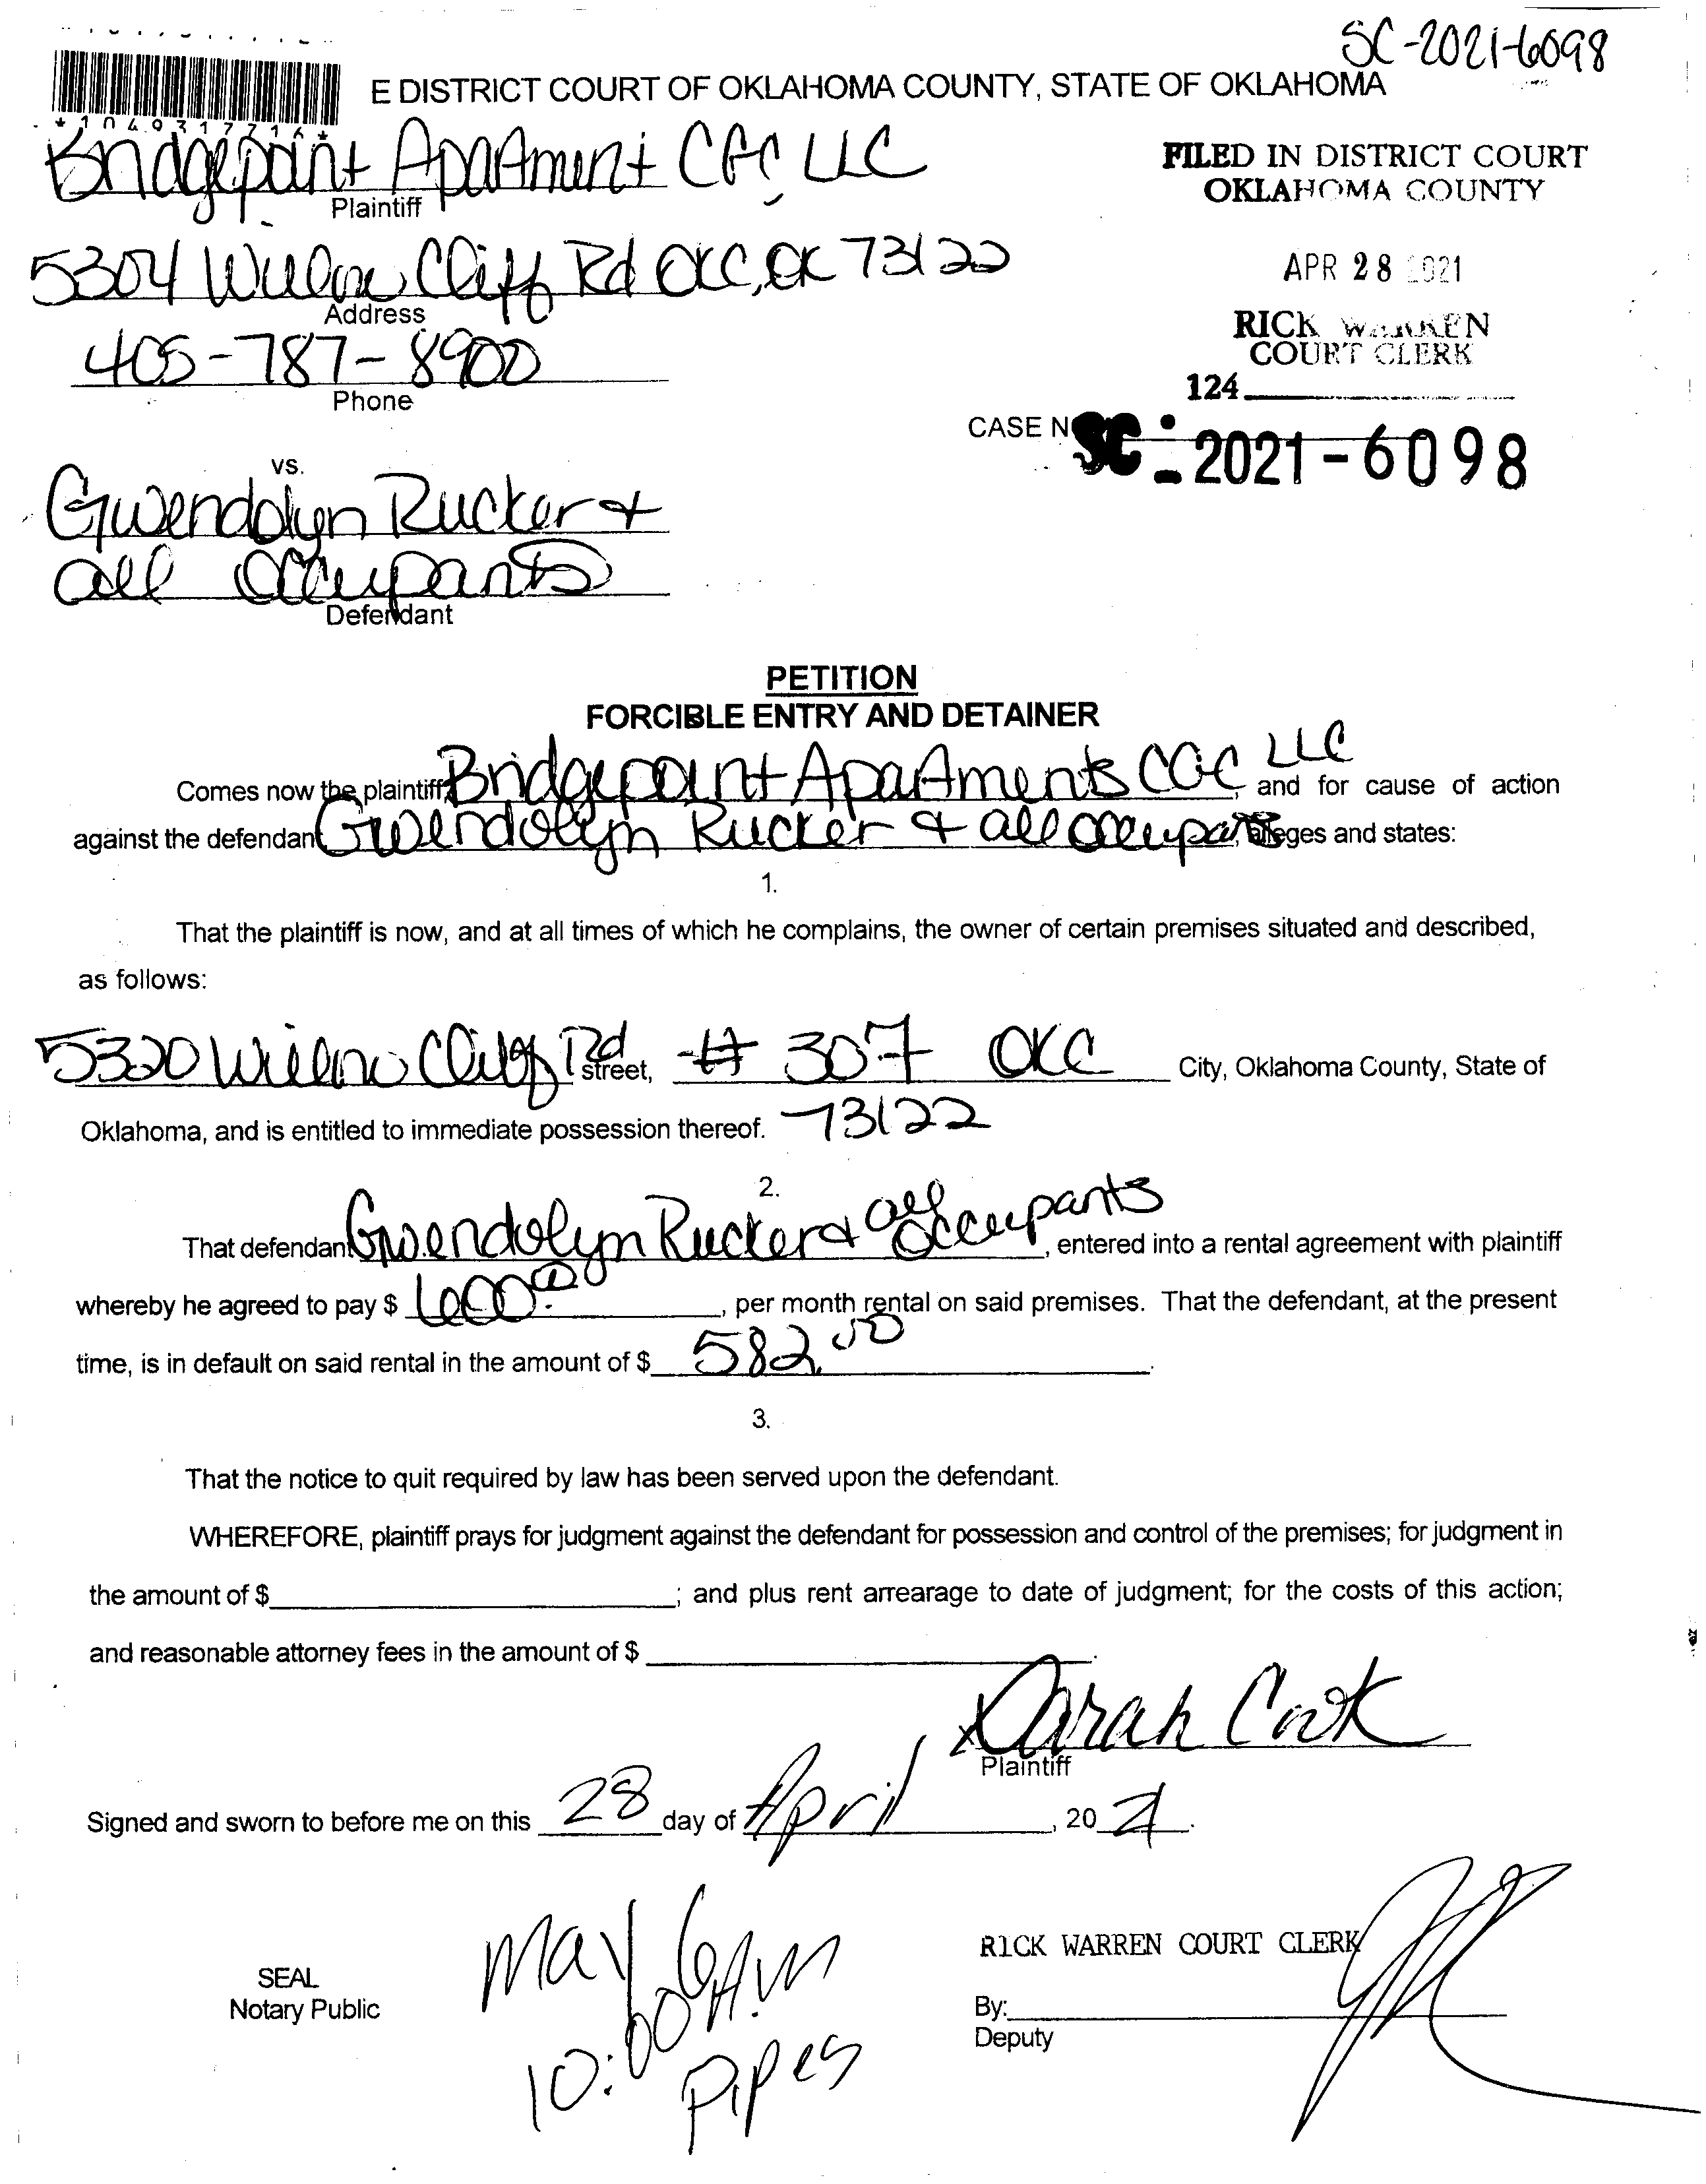 SC-2021-6098
E DISTRICT COURT OF OKLAHOMA COUNTY, STATE OF OKLAHOMA
*1049317716*
Bridgepoint Apartment CGC LLC
Plaintiff
FILED IN DISTRICT COURT
OKLAHOMA COUNTY
5304 Willow Cliff Rd OKC, OK 73122
Address
APR 28 2021
405-787-8900
Phone
RICK WARREN
COURT CLERK
124
CASE N SC-2021-6098
vs.
Gwendolyn Rucker +
all occupants
Defendant
PETITION
FORCIBLE ENTRY AND DETAINER
Comes now the plaintiff, Bridgepoint Apartments CGC LLC, and for cause of action
against the defendant Gwendolyn Rucker + all occupants, alleges and states:
1.
That the plaintiff is now, and at all times of which he complains, the owner of certain premises situated and described,
as follows:
5320 Willow Cliff Rd street, # 307 OKC City, Oklahoma County, State of
Oklahoma, and is entitled to immediate possession thereof. 73122
2.
That defendant Gwendolyn Rucker + all occupants, entered into a rental agreement with plaintiff
whereby he agreed to pay $ 600.00, per month rental on said premises. That the defendant, at the present
time, is in default on said rental in the amount of $ 582.00.
3.
That the notice to quit required by law has been served upon the defendant.
WHEREFORE, plaintiff prays for judgment against the defendant for possession and control of the premises; for judgment in
the amount of $ ; and plus rent arrearage to date of judgment; for the costs of this action;
and reasonable attorney fees in the amount of $ .
x Sarah Cook
Plaintiff
Signed and sworn to before me on this 28 day of April, 20 21.
May 6
10:00 A.m
Pipes
SEAL
Notary Public
RICK WARREN COURT CLERK
By:
Deputy